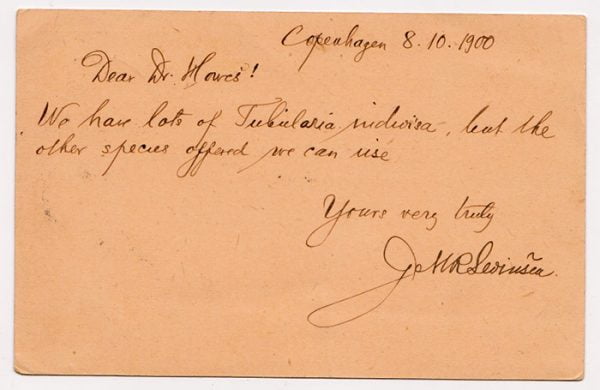 Copenhagen 8.10.1900
Dear Dr. Howes!
We have lots of Tubularia indivisa, but the
other species offered we can use
Yours very truly
G M R Levinsen.